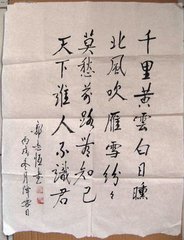 千里黄雲白日曛
北風吹雁雪紛々
莫愁前路無知己
天下誰人不識君